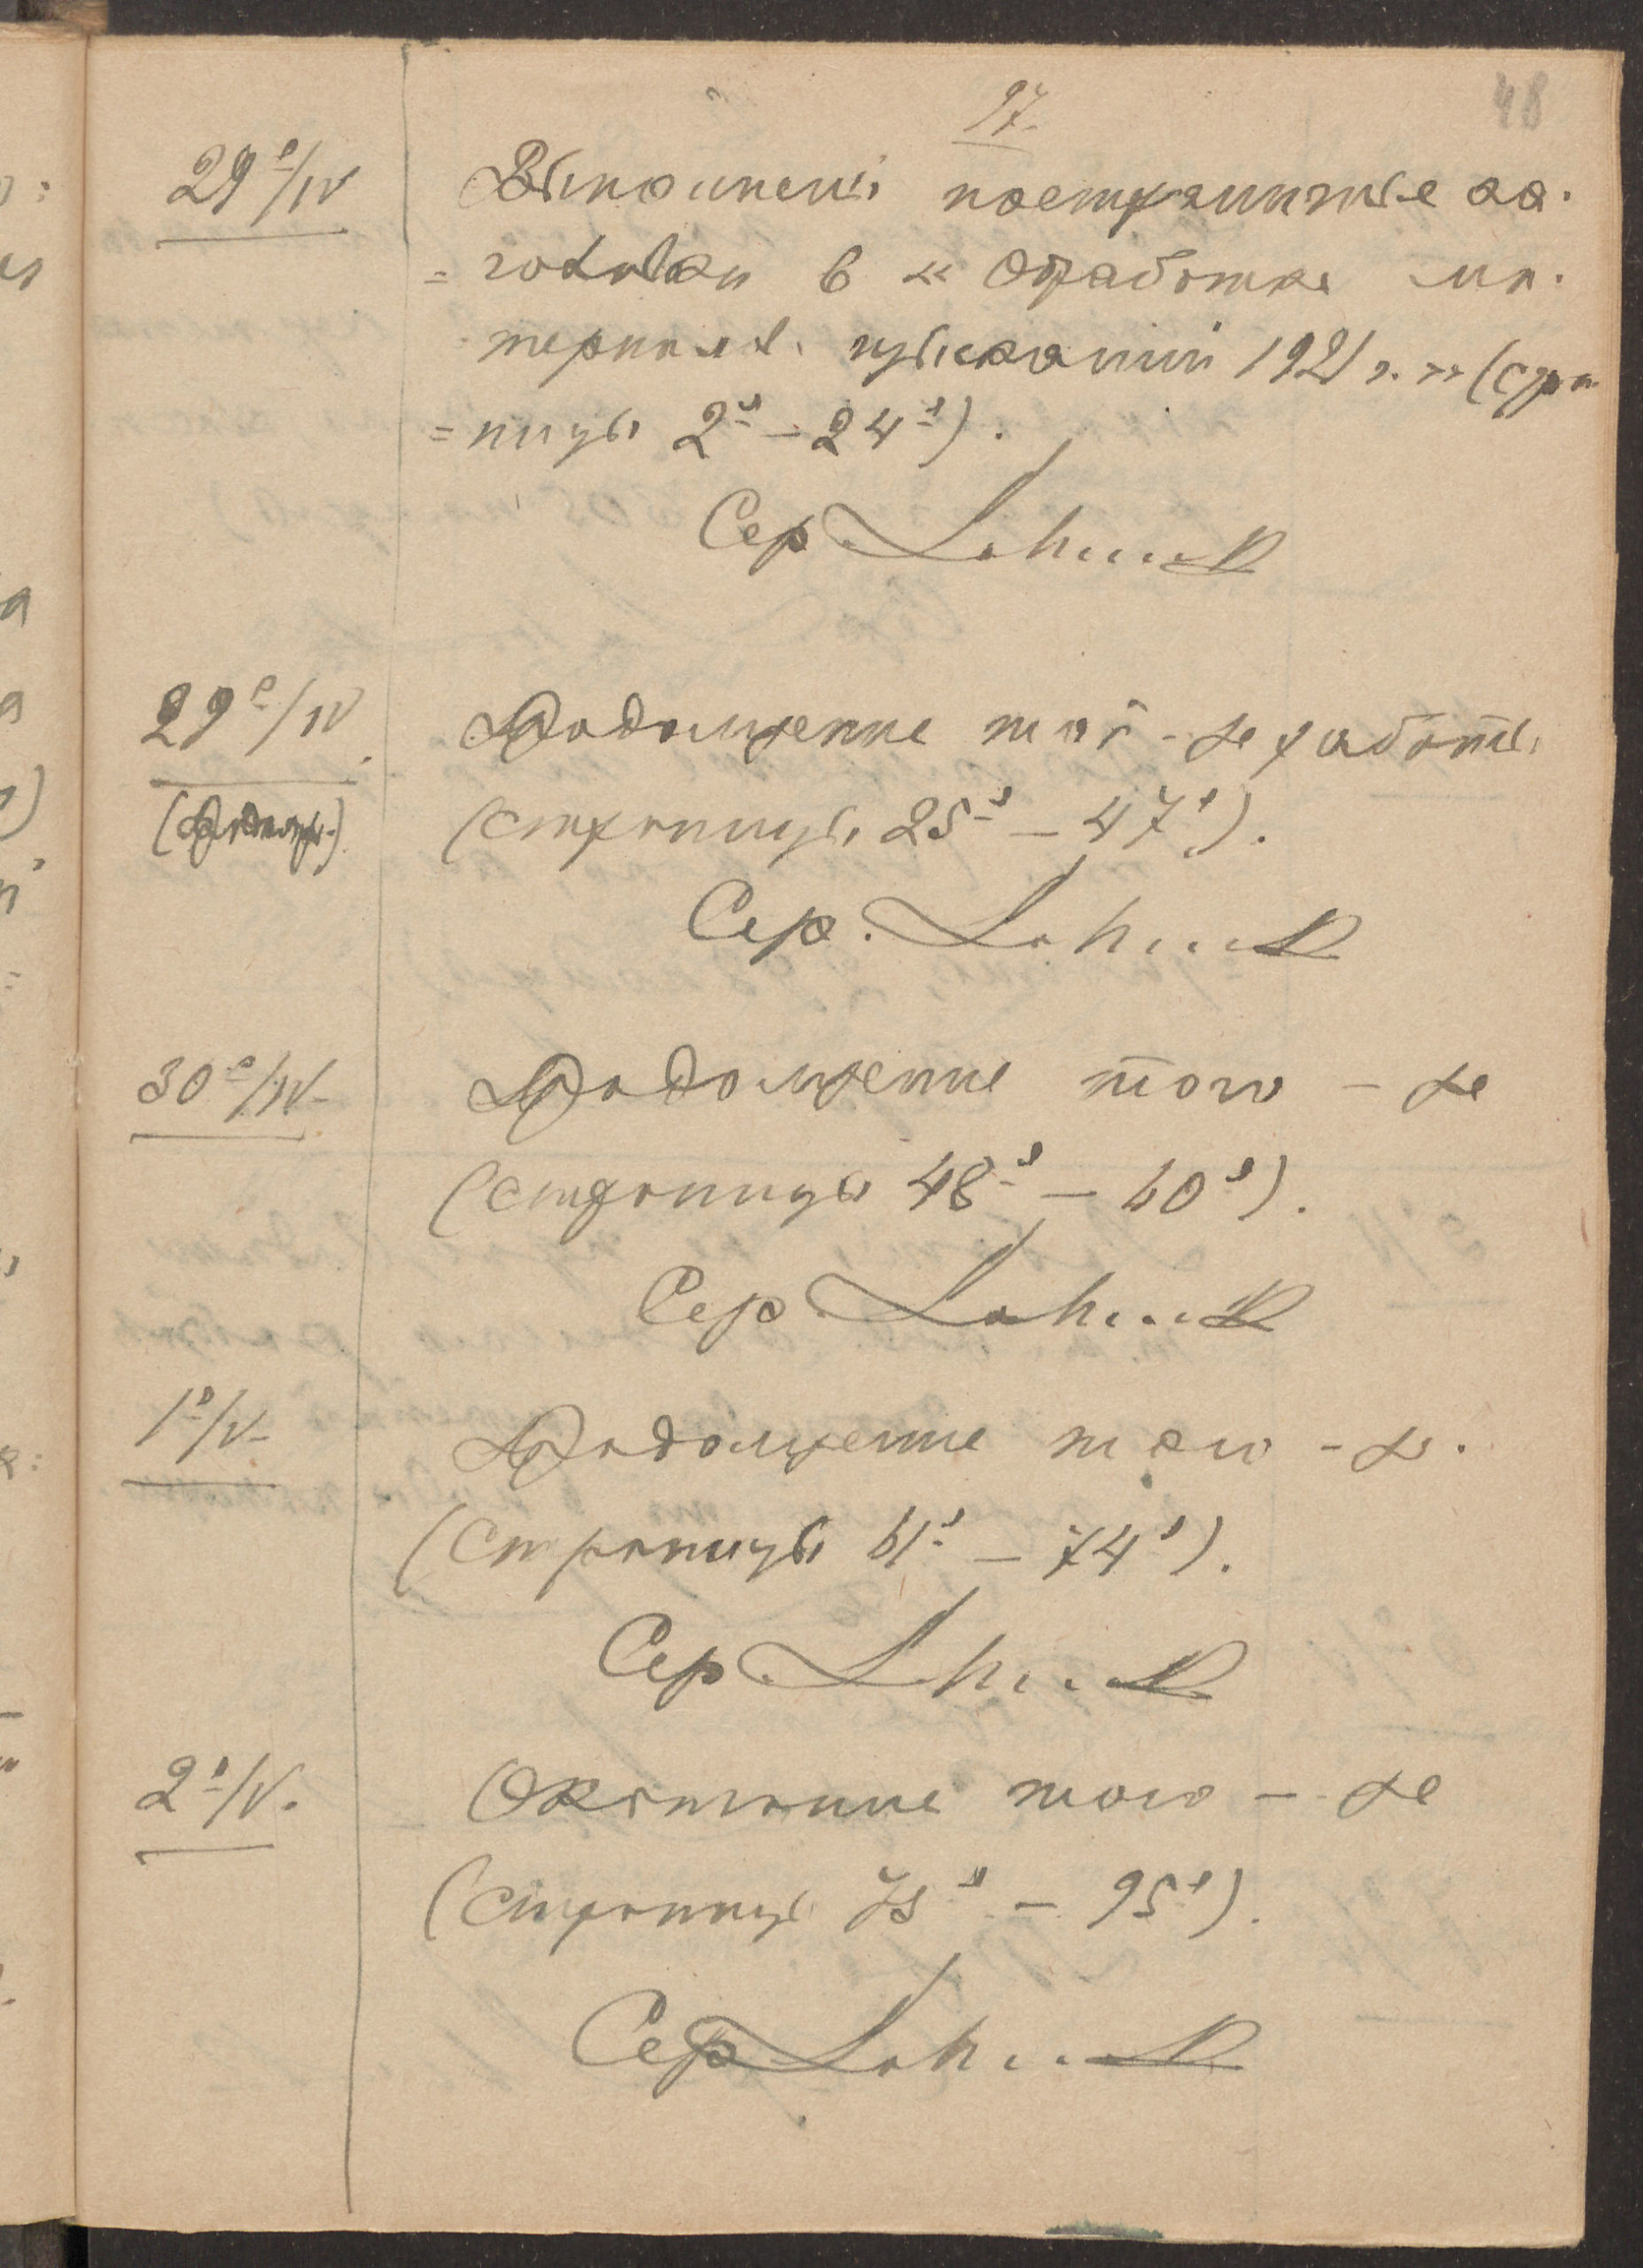 97.
48
29º/IV
Выполнены постраничные за-
=головки в «Обработке ма-
териалов изысканий 1921 г.» (стра
=ницы 2я – 24я).
Сер.
29º/IV.
(продолж.)
Продолжение той-же работы
(страницы 25я – 47я).
Сер.
30º/IV
Продолжение того – же
(страницы 48я – 60я).
Сер.
1º/V
Продолжение того – же.
(страницы 61я – 74я).
Сер.
2º/V.
Окончание того – же
(страницы 75я – 95я).
Сер.